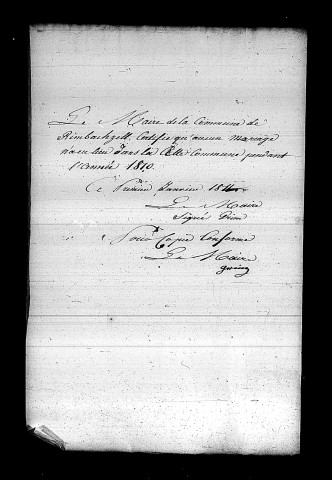 Le Maire de la Commune de
Rimbachzell, Certifie qu'aucun mariage
n'a eu lieu dans la dite Commune pendant
l'année 1810.
Ce Premier Janvier
Le Maire
Signé
Pour Copie Conforme
Le Maire